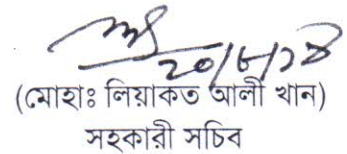 ২০/৮/১৪
(মোহাঃ লিয়াকত আলী খান)
সহকারী সচিব